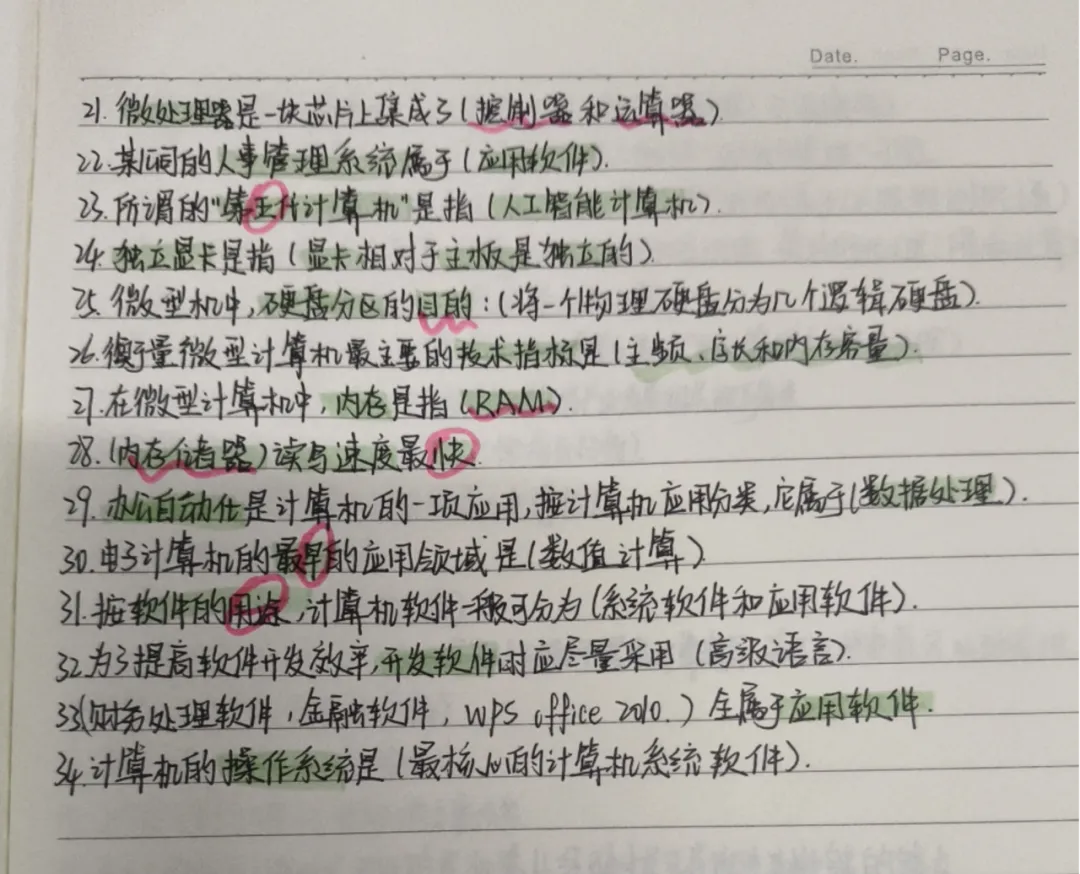 Date. Page.
21. 微处理器是一块芯片上集成了(控制器和运算器)
22. 某公司的人事管理系统属于(应用软件).
23. 所谓的"第五代计算机"是指(人工智能计算机).
24. 独立显卡是指(显卡相对于主板是独立的)
25. 微型机中,硬盘分区的目的:(将一个物理硬盘分为几个逻辑硬盘).
26. 衡量微型计算机最主要的技术指标是(主频、字长和内存容量).
27. 在微型计算机中,内存是指(RAM).
28. (内存储器)读写速度最快.
29. 办公自动化是计算机的一项应用,按计算机应用分类,它属于(数据处理).
30. 电子计算机的最早的应用领域是(数值计算)
31. 按软件的用途,计算机软件一般可分为(系统软件和应用软件).
32. 为了提高软件开发效率,开发软件时应尽量采用(高级语言).
33(财务处理软件,金融软件,WPS office 2010.)全属于应用软件.
34. 计算机的操作系统是(最核心的计算机系统软件).